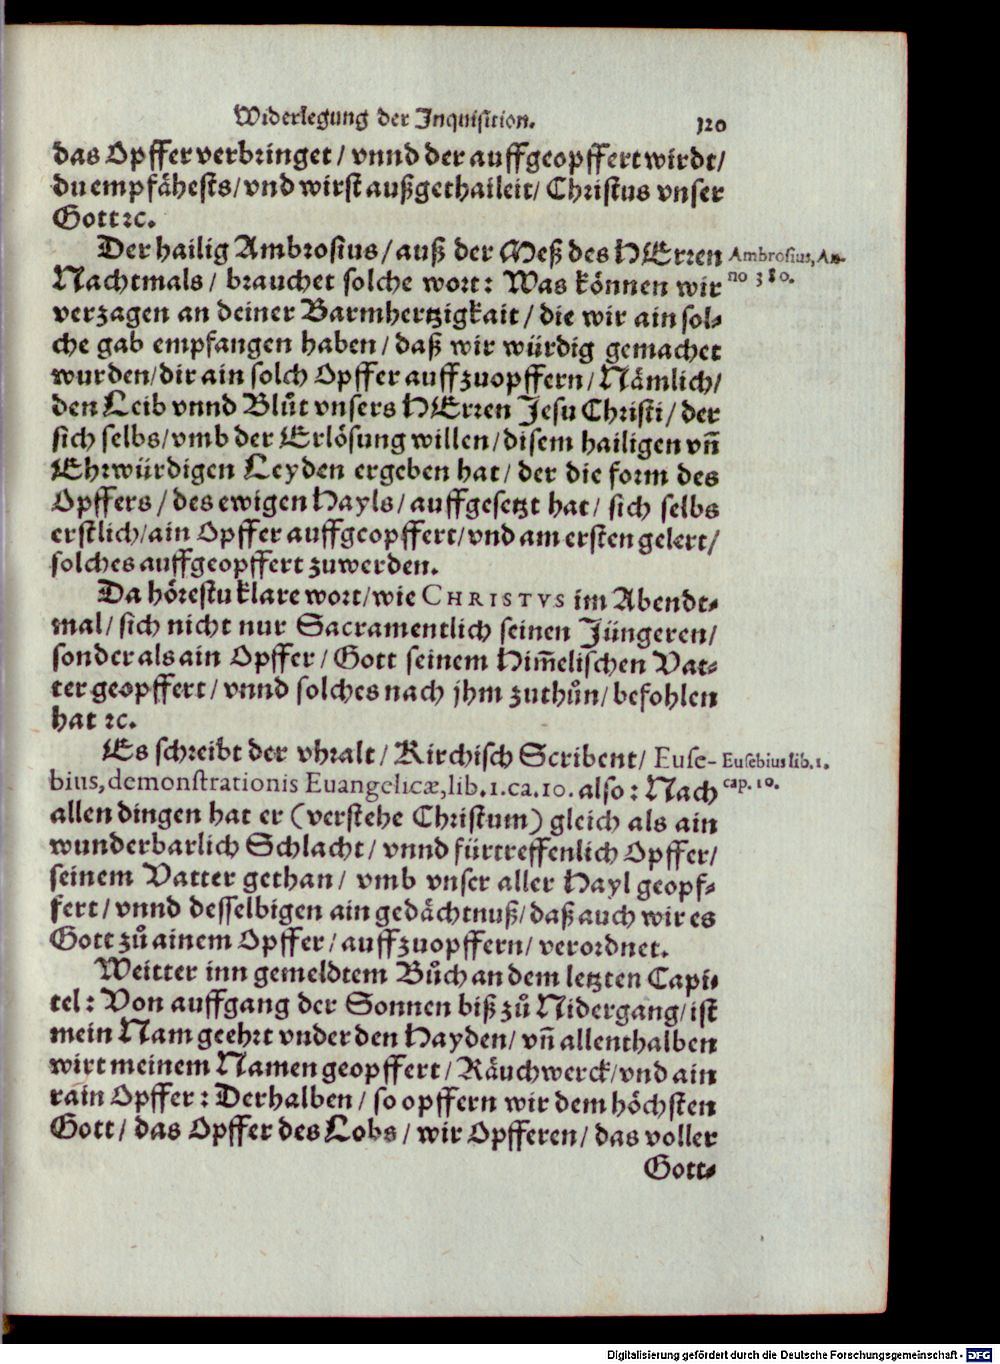 Widerlegung der Inquisition. 120
das Opffer verbringet / vnnd der auffgeopffert wirdt /
du empfähests / vnd wirst außgethaileit / Christus vnser
Gott ꝛc.
Der hailig Ambrosius / auß der Meß des HErren
Ambrosius, An-
no 380.
Nachtmals / brauchet solche wort: Was können wir
verzagen an deiner Barmhertzigkait / die wir ain sol-
che gab empfangen haben / daß wir würdig gemachet
wurden / dir ain solch Opffer auffzuopffern / Nämlich /
den Leib vnnd Blůt vnsers HErren Jesu Christi / der
sich selbs / vmb der Erlösung willen / disem hailigen vñ
Ehrwürdigen Leyden ergeben hat / der die form des
Opffers / des ewigen Hayls / auffgesetzt hat / sich selbs
erstlich / ain Opffer auffgeopffert / vnd am ersten gelert /
solches auffgeopffert zuwerden.
Da hörestu klare wort / wie CHRISTVS im Abendt-
mal / sich nicht nur Sacramentlich seinen Jüngeren /
sonder als ain Opffer / Gott seinem Him̃elischen Vat-
ter geopffert / vnnd solches nach jhm zuthůn / befohlen
hat ꝛc.
Es schreibt der vhralt / Kirchisch Scribent / Euse-
Eusebius lib. 1.
cap. 10.
bius, demonstrationis Euangelicæ, lib. 1. ca. 10. also: Nach
allen dingen hat er (verstehe Christum) gleich als ain
wunderbarlich Schlacht / vnnd fürtreffenlich Opffer /
seinem Vatter gethan / vmb vnser aller Hayl geopf-
fert / vnnd desselbigen ain gedächtnuß / daß auch wir es
Gott zů ainem Opffer / auffzuopffern / verordnet.
Weitter inn gemeldtem Bůch an dem letzten Capi-
tel: Von auffgang der Sonnen biß zů Nidergang / ist
mein Nam geehrt vnder den Hayden / vñ allenthalben
wirt meinem Namen geopffert / Räuchwerck / vnd ain
rain Opffer: Derhalben / so opffern wir dem höchsten
Gott / das Opffer des Lobs / wir Opfferen / das voller
Gott-
Digitalisierung gefördert durch die Deutsche Forschungsgemeinschaft - DFG